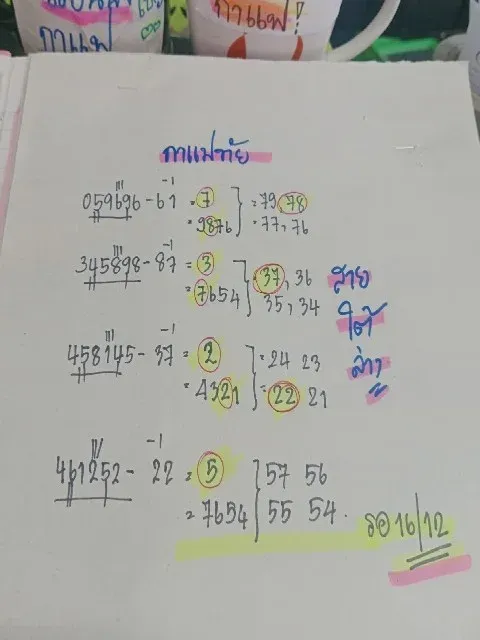 กาแฟ
กาแฟ!
กาแฟทัย
-1
059696-61 = 7 = 79, 78
= 9876 = 77, 76
-1
345898-87 = 3 37, 36
= 7654 35, 34
สาย
ใต้
ล่าง
-1
458145-37 = 2 = 24 23
= 4321 = 22 21
-1
461252- 22 = 5 57 56
= 7654 55 54.
รอ 16/12